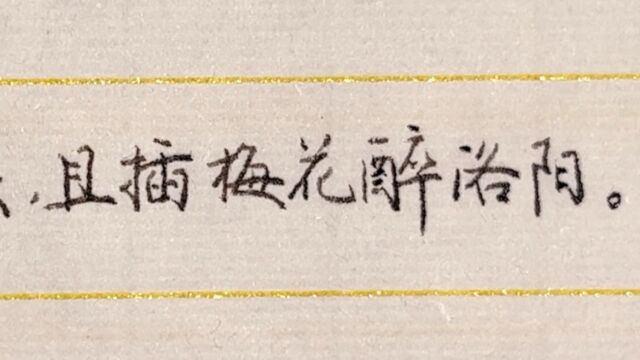 ，且插梅花醉洛阳。